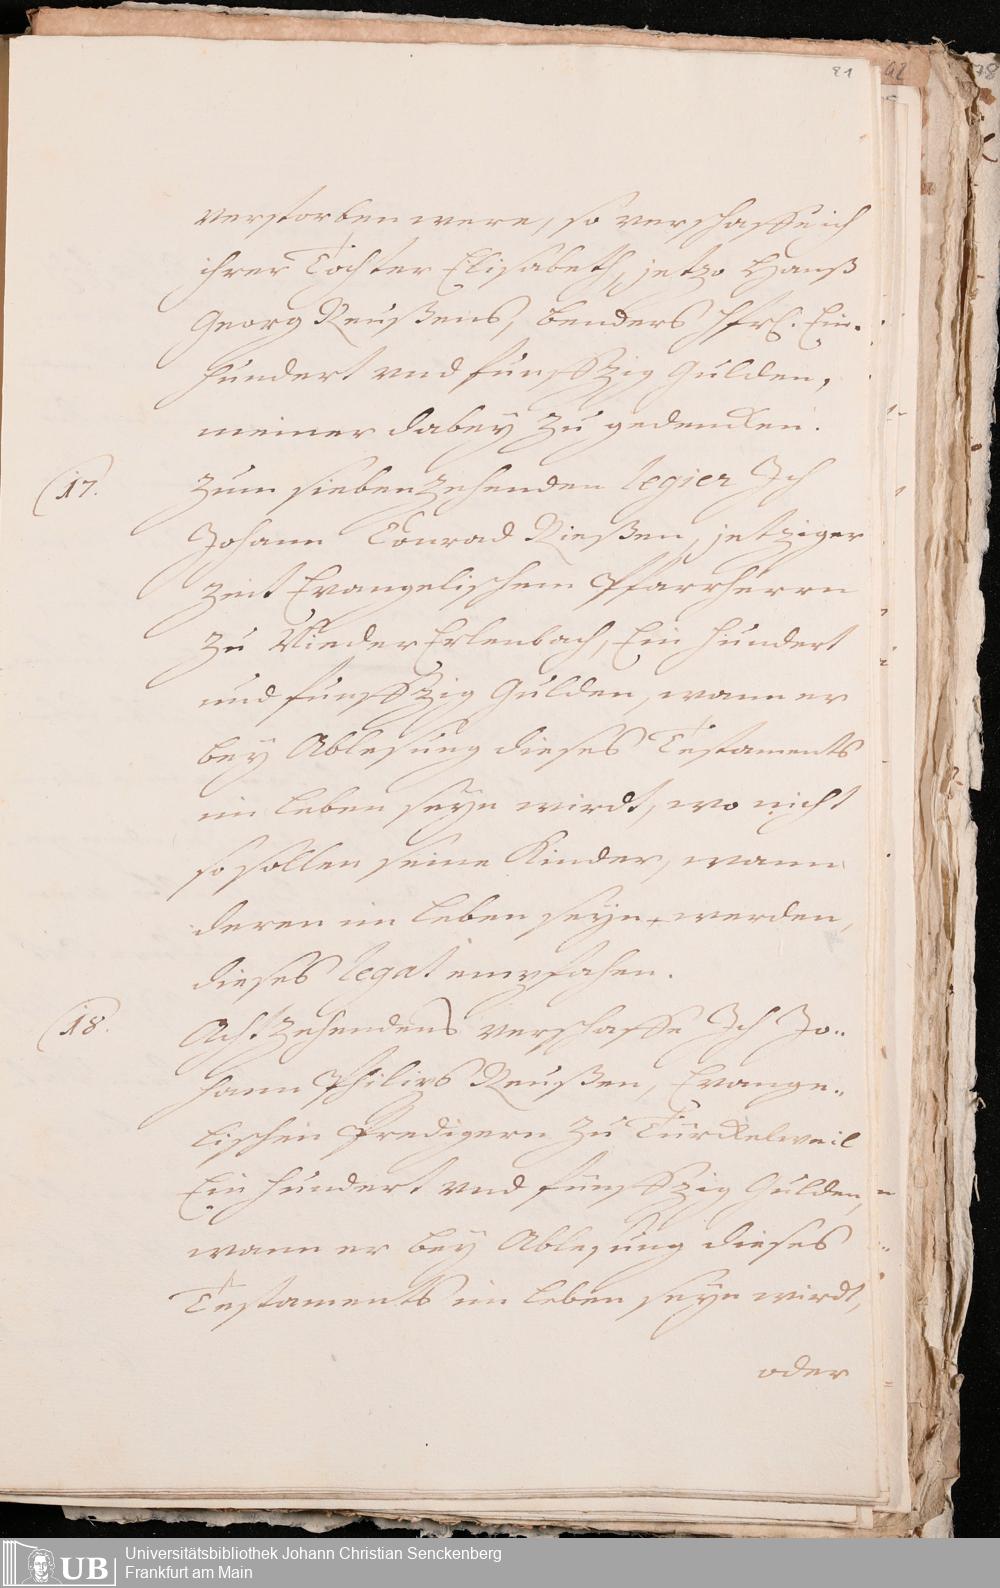 81
verstorben were, so verschaffe ich
ihrer Tochter Elisabeth, jetzo Hanß
Georg Reußens, Benders hfrl. Ein-
hundert vnd funffzig Gulden,
meiner dabey zu gedencken.
17.
Zum siebenzehenden legier Ich
Johann Conrad Rießen, jetziger
Zeit Evangelischem Pfarrherrn
zu NiederErlenbach, Ein hundert
und funffzig Gulden, wann er
bey Ablesung dieses Testaments
im leben seyn wirdt, wo nicht
so sollen seine Kinder, wann
deren im leben seyn werden,
dieses legat empfahen.
18.
Achtzehendens verschaffe Ich Jo-
hann Philips Reußen, Evange-
lischen Predigern zu Türckelweil
Ein hundert vnd funffzig Gulden,
wann er bey Ablesung dieses
Testaments im leben seyn wirdt,
oder
UB
Universitätsbibliothek Johann Christian Senckenberg
Frankfurt am Main